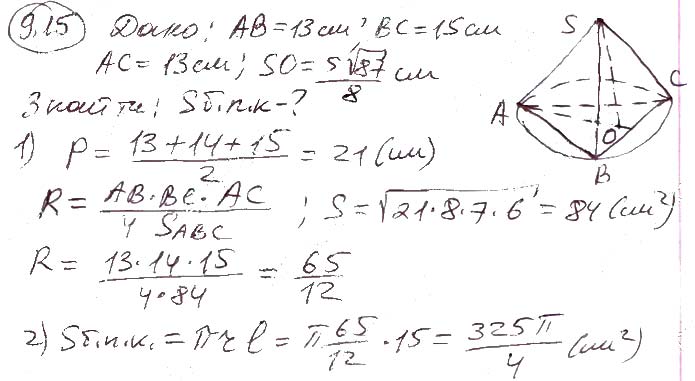 9.15 Дано: AB=13см, BC=15см
AC=13см; SO=5√87/8 см
Знайти: Sб.п.к-?
1) P = (13+14+15)/2 = 21 (см)
R = AB·BC·AC/4 S_ABC ; S=√21·8·7·6 = 84 (см²)
R = 13·14·15/4·84 = 65/12
2) Sб.п.к. = πrl = π 65/12 · 15 = 325π/4 (см²)
S
A
B
C
O